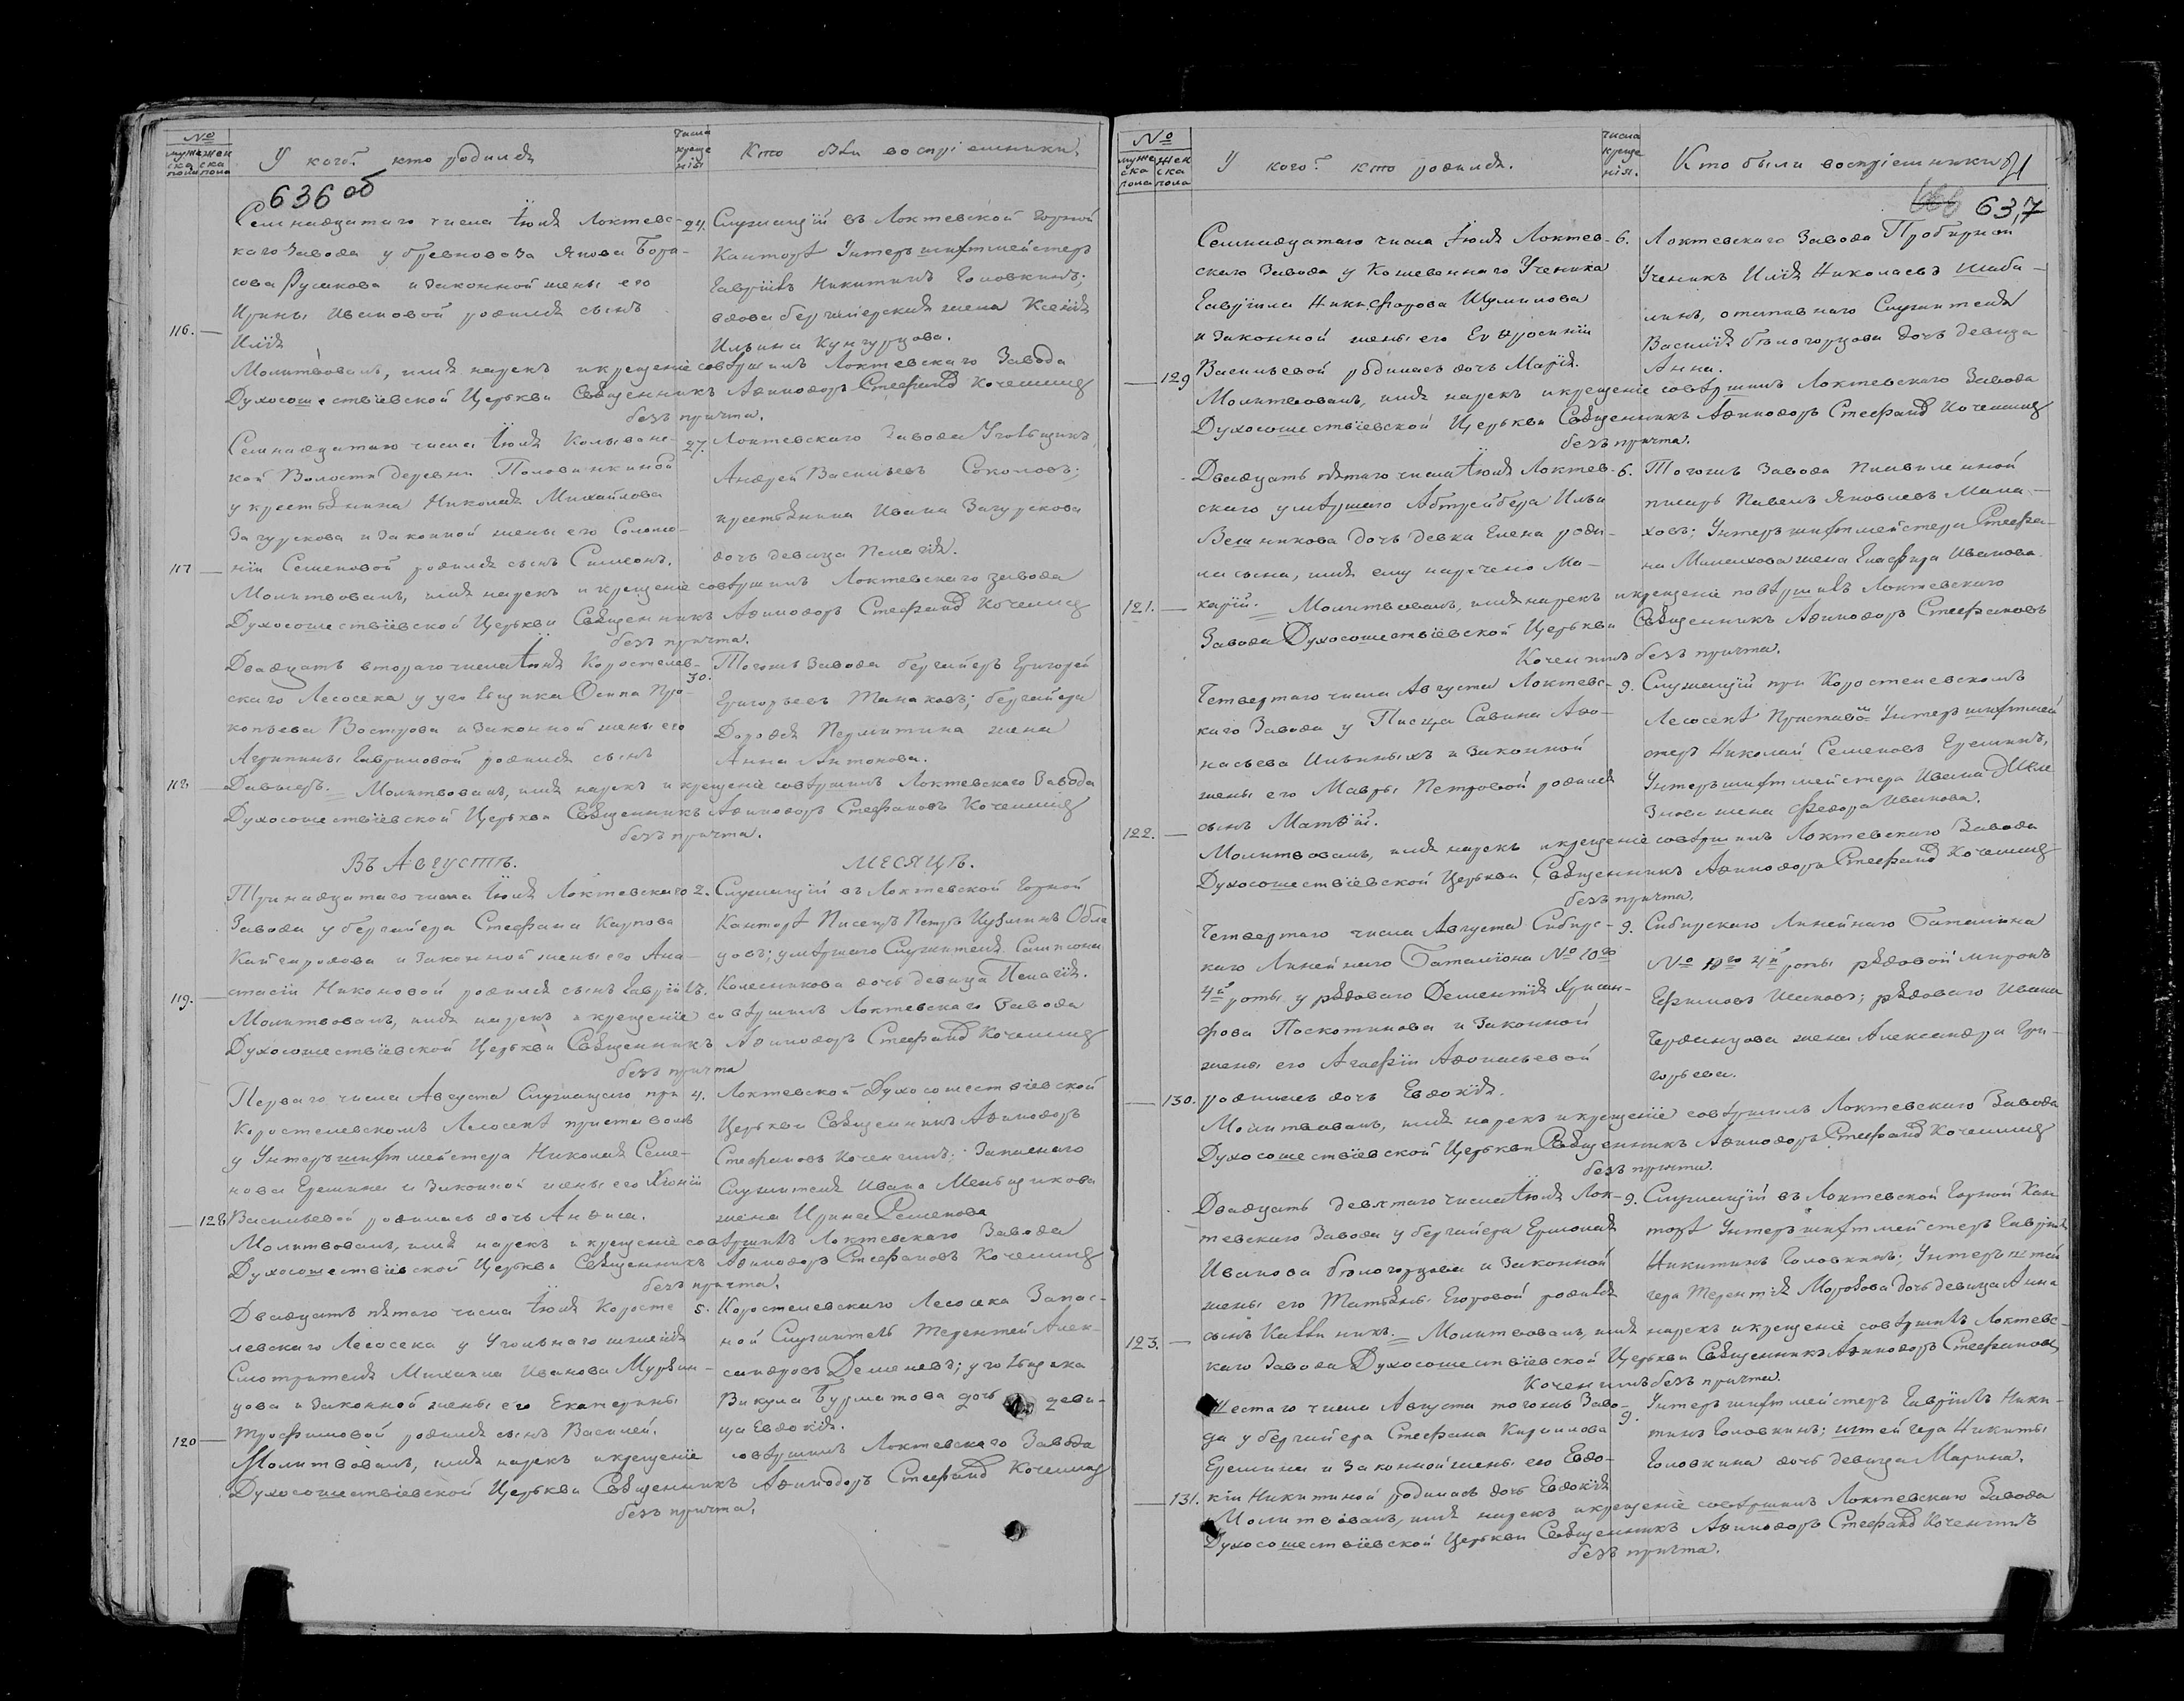 №
муже ска пола
жен ска пола
У кого? кто родился
числа креще нія
Кто были воспріемники.
636 об
Семнадцатаго числа Іюля Локтевс-
каго Завода у бревновоза Якова Бора-
сова Русакова и законной жены его
Ирины Ивановой родился сынъ
116. — Илія
24. Служащій въ Локтевской Горной
Канторѣ Унтеръ шихтмейстеръ
Гавріилъ Никитинъ Головкинъ;
вдова бергаіерская жена Ксенія
Ильина Кунгурцова.
Молитвовалъ, имя нарекъ и крещеніе совѣршилъ Локтевскаго Завода
Духосошествіевской Церькви Священникъ Авиподоръ Стефанов Коченгинъ
безъ причта.
Семнадцатаго числа Іюля Колыванс-
кой Волости деревни Половинкиной
у крестьянина Николая Михайлова
Загурскова и законной жены его Соломо-
117 — ніи Семеновой родился сынъ Симеонъ.
27. Локтевскаго Завода Угольщикъ
Андрей Васильевъ Соколовъ;
крестьянина Ивана Загурскова
дочь девица Пелагія.
Молитвовалъ, имя нарекъ и крещеніе совѣршилъ Локтевскаго завода
Духосошествіевской Церькви Священникъ Авиподоръ Стефанов Коченгинъ
безъ причта.
Двадцать втораго числа Іюля Коростелев-
скаго Лесосека у угольщика Осипа Про-
копьева Вострова и законной жены его
Агрипины Гавриловой родился сынъ
118 — Давыдъ.
30. Тогожъ Завода бергаіеръ Григорей
Григорьевъ Танаковъ; бергаіера
Дорофея Пермитина жена
Анна Антонова.
Молитвовалъ, имя нарекъ и крещеніе совѣршилъ Локтевскаго Завода
Духосошествіевской Церькви Священникъ Авиподоръ Стефановъ Коченгинъ
безъ причта.
Въ Августѣ. МЕСЯЦѢ.
Тринадцатаго числа Іюля Локтевскаго
Завода у бергаіера Стефана Карпова
Кайгородова и законной жены его Ана-
119. — стасіи Никоновой родился сынъ Гавріилъ.
2. Служащій въ Локтевской Горной
Канторѣ Писецъ Петръ Обла
цовъ; умѣршаго Служителя Сампсона
Колесникова дочь девица Пелагія.
Молитвовалъ, имя нарекъ и крещеніе совѣршилъ Локтевскаго Завода
Духосошествіевской Церькви Священникъ Авиподоръ Стефанов Коченгинъ
безъ причта
Перваго числа Августа Служащаго при
Коростелевскомъ Лесосекѣ приставомъ
у Унтеръ шихтмейстера Николая Семе-
нова Еремина и законной жены его Хіоніи
— 128 Васильевой родилась дочь Анфиса.
4. Локтевской Духосошествіевской
Церькви Священникъ Авиподоръ
Стефановъ Коченгинъ; Запаснаго
Служителя Ивана Меньщикова
жена Ирина Семенова
Молитвовалъ, имя нарекъ и крещеніе совѣршилъ Локтевскаго Завода
Духосошествіевской Церькви Священникъ Авиподоръ Стефановъ Коченгинъ
безъ причта.
Двадцать пятаго числа Іюля Коросте
левскаго Лесосека у Угольнаго
Смотрителя Михаила Иванова Мурзин-
цова и законной жены его Екатерины
120 — Трофимовой родился сынъ Василей.
5. Коростелевскаго Лесосека Запас-
ной Служитель Терентей Алек-
сандровъ Деменевъ; угольщика
Викула Бурматова дочь деви-
ца Евдокія.
Молитвовалъ, имя нарекъ и крещеніе совѣршилъ Локтевскаго Завода
Духосошествіевской Церькви Священникъ Авиподоръ Стефанов Коченгинъ
безъ причта.
№
муже ска пола
жен ска пола
У кого? кто родился.
числа креще нія.
Кто были воспріемники
637
Семнадцатаго числа Іюля Локтев-
скаго Завода у Кошеваннаго Ученика
Гавріила Никифорова Шумилова
и законной жены его Евфросиніи
— 129 Васильевой родилась дочь Марія.
6. Локтевскаго Завода Пробирной
Ученикъ Илія Николаевъ Шаба-
линъ, отставнаго Служителя
Василія бѣлогорцова дочь девица
Анна.
Молитвовалъ, имя нарекъ и крещеніе совѣршилъ Локтевскаго Завода
Духосошествіевской Церькви Священникъ Авиподоръ Стефанов Коченгинъ
безъ причта.
Двадцать пятаго числа Іюля Локтев-
скаго умѣршаго Абтрейбера Ильи
Вешникова дочь девка Елена роди-
ла сына, имя ему наречено Ма-
121. — карій.
6. Тогожъ Завода Плавиленной
писарь Павелъ Яковлевъ Мала-
ховъ; Унтеръ шихтмейстера Стефа-
на Малахова жена Глафира Иванова
Молитвовалъ, имя нарекъ и крещеніе совѣршилъ Локтевскаго
Завода Духосошествіевской Церькви Священникъ Авиподоръ Стефановъ
Коченгинъ безъ причта.
Четвертаго числа Августа Локтевс-
каго Завода у Писца Савина Афо-
насьева Ильиныхъ и законной
жены его Мавры Петровой родился
122. — сынъ Матѳій.
9. Служащій при Коростелевскомъ
Лесосекѣ Приставомъ Унтеръ шихтмей
стеръ Николай Семеновъ Ереминъ,
Унтеръ шихтмейстера Ивана
жена Федора Иванова.
Молитвовалъ, имя нарекъ и крещеніе совѣршилъ Локтевскаго Завода
Духосошествіевской Церькви Священникъ Авиподоръ Стефанов Коченгинъ
безъ причта.
Четвертаго числа Августа Сибирс-
каго Линейнаго Баталіона № 10го
4й роты у рядоваго Дементія Хрисан-
фова Поскотинова и законной
жены его Агафіи Афонасьевой
— 130. родилась дочь Евдокія.
9. Сибирскаго Линейнаго Баталіона
№ 10го 4й роты рядовой Миронъ
Ефимовъ Шановъ; рядоваго Ивана
Чердынцова жена Александра Гри-
горьева.
Молитвовалъ, имя нарекъ и крещеніе совѣршилъ Локтевскаго Завода
Духосошествіевской Церькви Священникъ Авиподоръ Стефанов Коченгинъ
безъ причта.
Двадцать девятаго числа Іюля Лок-
тевскаго Завода у бергаіера Ермолая
Иванова бѣлогорцова и законной
жены его Татьяны Егоровой родился
123. — сынъ Каллиникъ.
9. Служащій въ Локтевской Горной Кан
торѣ Унтеръ шихтмейстеръ Гавріилъ
Никитинъ Головкинъ; Унтеръ штей
гера Терентія Морозова дочь девица Анна
Молитвовалъ, имя нарекъ и крещеніе совѣршилъ Локтевс-
каго Завода Духосошествіевской Церькви Священникъ Авиподоръ Стефановъ
Коченгинъ безъ причта.
Шестаго числа Августа тогожъ Заво-
да у бергаіера Стефана Кирилова
Еремина и законной жены его Евдо-
— 131. кіи Никитиной родилась дочь Евдокія
9. Унтеръ шихтмейстеръ Гавріилъ Ники-
тинъ Головкинъ; штейгера Никиты
Головкина дочь девица Марина.
Молитвовалъ, имя нарекъ и крещеніе совѣршилъ Локтевскаго Завода
Духосошествіевской Церькви Священникъ Авиподоръ Стефанов Коченгинъ
безъ причта.